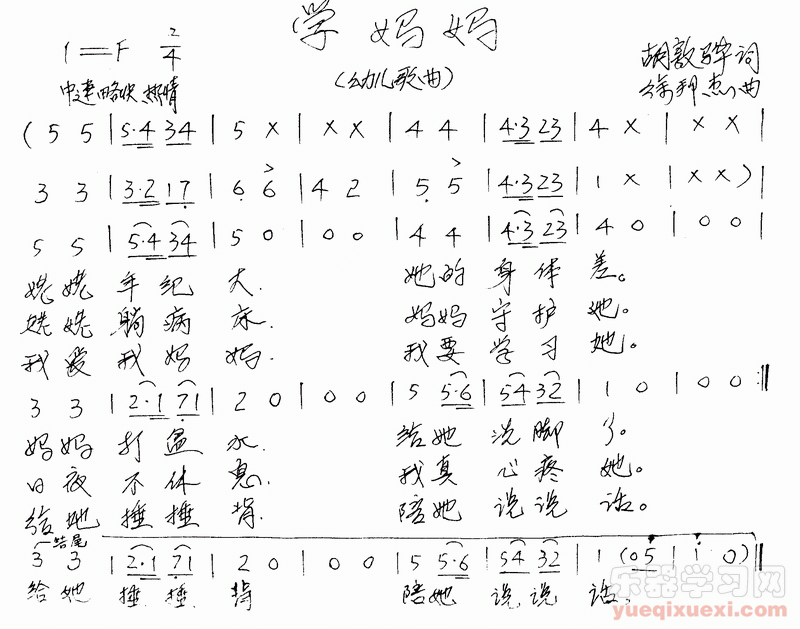 学妈妈
1=F 2/4
(幼儿歌曲)
胡敦骅词
中速 略快 热情
徐邦杰曲
( 5 5 | 5·4 34 | 5 X | X X | 4 4 | 4·3 23 | 4 X | X X |
3 3 | 3·2 17 | 6 6 | 4 2 | 5 5 | 4·3 23 | 1 X | X X ) |
5 5 | 5·4 34 | 5 0 | 0 0 | 4 4 | 4·3 23 | 4 0 | 0 0 |
姥姥年纪大. 她的身体差。
姥姥躺病床. 妈妈守护她。
我爱我妈妈. 我要学习她。
3 3 | 2·1 71 | 2 0 | 0 0 | 5 5·6 | 54 32 | 1 0 | 0 0 :||
妈妈打盆水 给她洗脚丫。
日夜不休息. 我真心疼她。
给她捶捶背. 陪她说说话。
结尾
3 3 | 2·1 71 | 2 0 | 0 0 | 5 5·6 | 54 32 | 1 (05 | 1 0) ||
给她捶捶背 陪她说说话.
乐器学习网
yueqixuexi.com